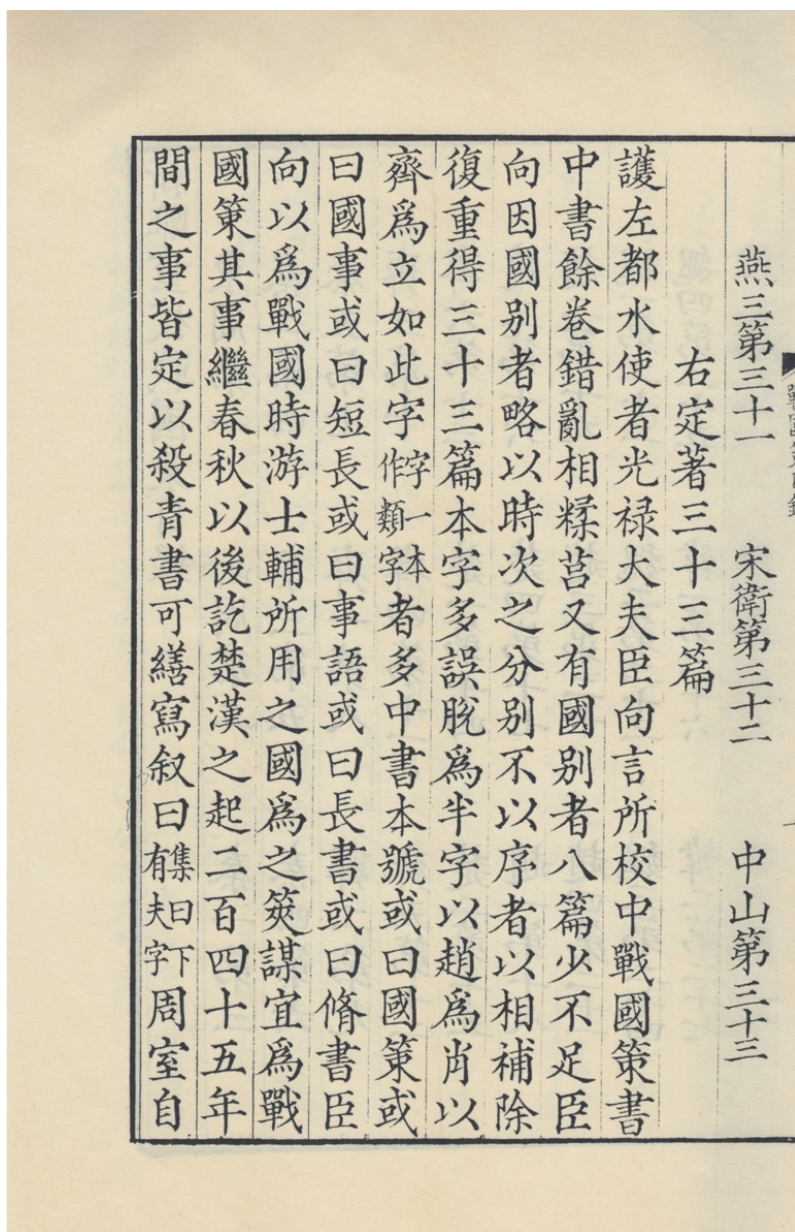 燕三第三十一　宋衛第三十二　中山第三十三
右定著三十三篇
護左都水使者光禄大夫臣向言所校中戰國策書
中書餘卷錯亂相糅莒又有國别者八篇少不足臣
向因國别者略以時次之分别不以序者以相補除
復重得三十三篇本字多誤脫爲半字以趙爲肖以
齊爲立如此字字一本作類字者多中書本號或曰國策或
曰國事或曰短長或曰事語或曰長書或曰脩書臣
向以爲戰國時游士輔所用之國爲之筴謀宜爲戰
國策其事繼春秋以後訖楚漢之起二百四十五年
間之事皆定以殺青書可繕寫叙曰集曰下有夫字周室自